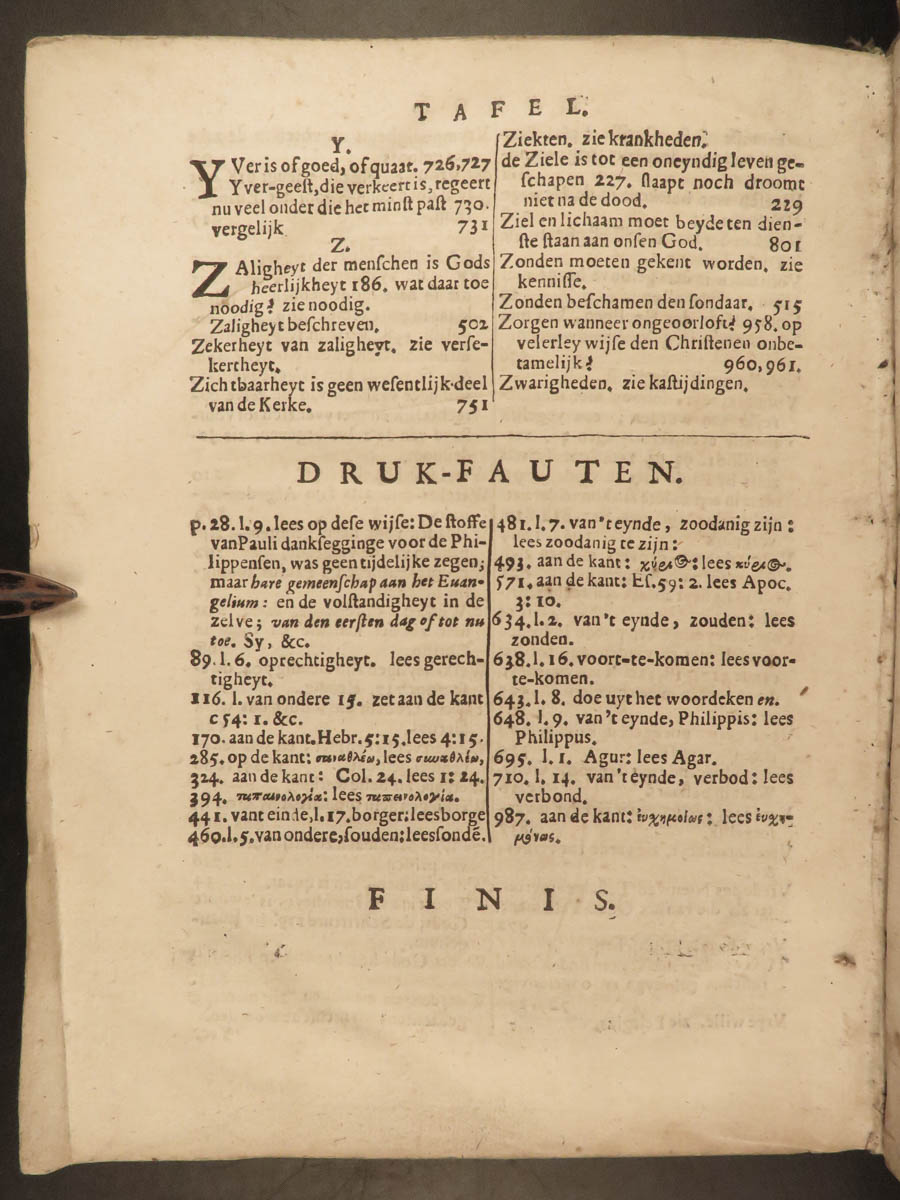 TAFEL.
Y.
YVer is of goed, of quaat. 726,727
Yver-geeſt, die verkeert is, regeert
nu veel onder die het minſt paſt 730.
vergelijk 731
Z.
ZAligheyt der menſchen is Gods
heerlijkheyt 186. wat daar toe
noodig? zie noodig.
Zaligheyt beſchreven. 502
Zekerheyt van zaligheyt. zie verſe-
kertheyt.
Zichtbaarheyt is geen weſentlijk-deel
van de Kerke. 751
Ziekten. zie krankheden.
de Ziele is tot een oneyndig leven ge-
ſchapen 227. ſlaapt noch droomt
niet na de dood. 229
Ziel en lichaam moet beyde ten dien-
ſte ſtaan aan onſen God. 801
Zonden moeten gekent worden. zie
kenniſſe.
Zonden beſchamen den ſondaar. 515
Zorgen wanneer ongeoorloft? 958. op
velerley wijſe den Chriſtenen onbe-
tamelijk? 960,961.
Zwarigheden. zie kaſtijdingen.
DRUK-FAUTEN.
p. 28. l. 9. lees op deſe wijſe: De ſtoffe
van Pauli dankſegginge voor de Phi-
lippenſen, was geen tijdelijke zegen;
maar hare gemeenſchap aan het Euan-
gelium: en de volſtandigheyt in de
zelve; van den eerſten dag of tot nu
toe. Sy, &c.
89. l. 6. oprechtigheyt. lees gerech-
tigheyt.
116. l. van ondere 15. zet aan de kant
c 54: 1. &c.
170. aan de kant. Hebr. 5:15. lees 4:15.
285. op de kant: lees
324. aan de kant: Col. 24. lees 1: 24.
394. lees
441. vant einde, l. 17. borger: lees borge
460. l. 5. van ondere, ſouden: lees ſonde.
481. l. 7. van't eynde, zoodanig zijn:
lees zoodanig te zijn:
493. aan de kant: lees
571. aan de kant: Eſ. 59: 2. lees Apoc.
3: 10.
634. l. 2. van't eynde, zouden: lees
zonden.
638. l. 16. voort-te-komen: lees voor-
te-komen.
643. l. 8. doe uyt het woordeken en.
648. l. 9. van't eynde, Philippis: lees
Philippus.
695. l. 1. Agur: lees Agar.
710. l. 14. van't eynde, verbod: lees
verbond.
987. aan de kant: lees
FINIS.